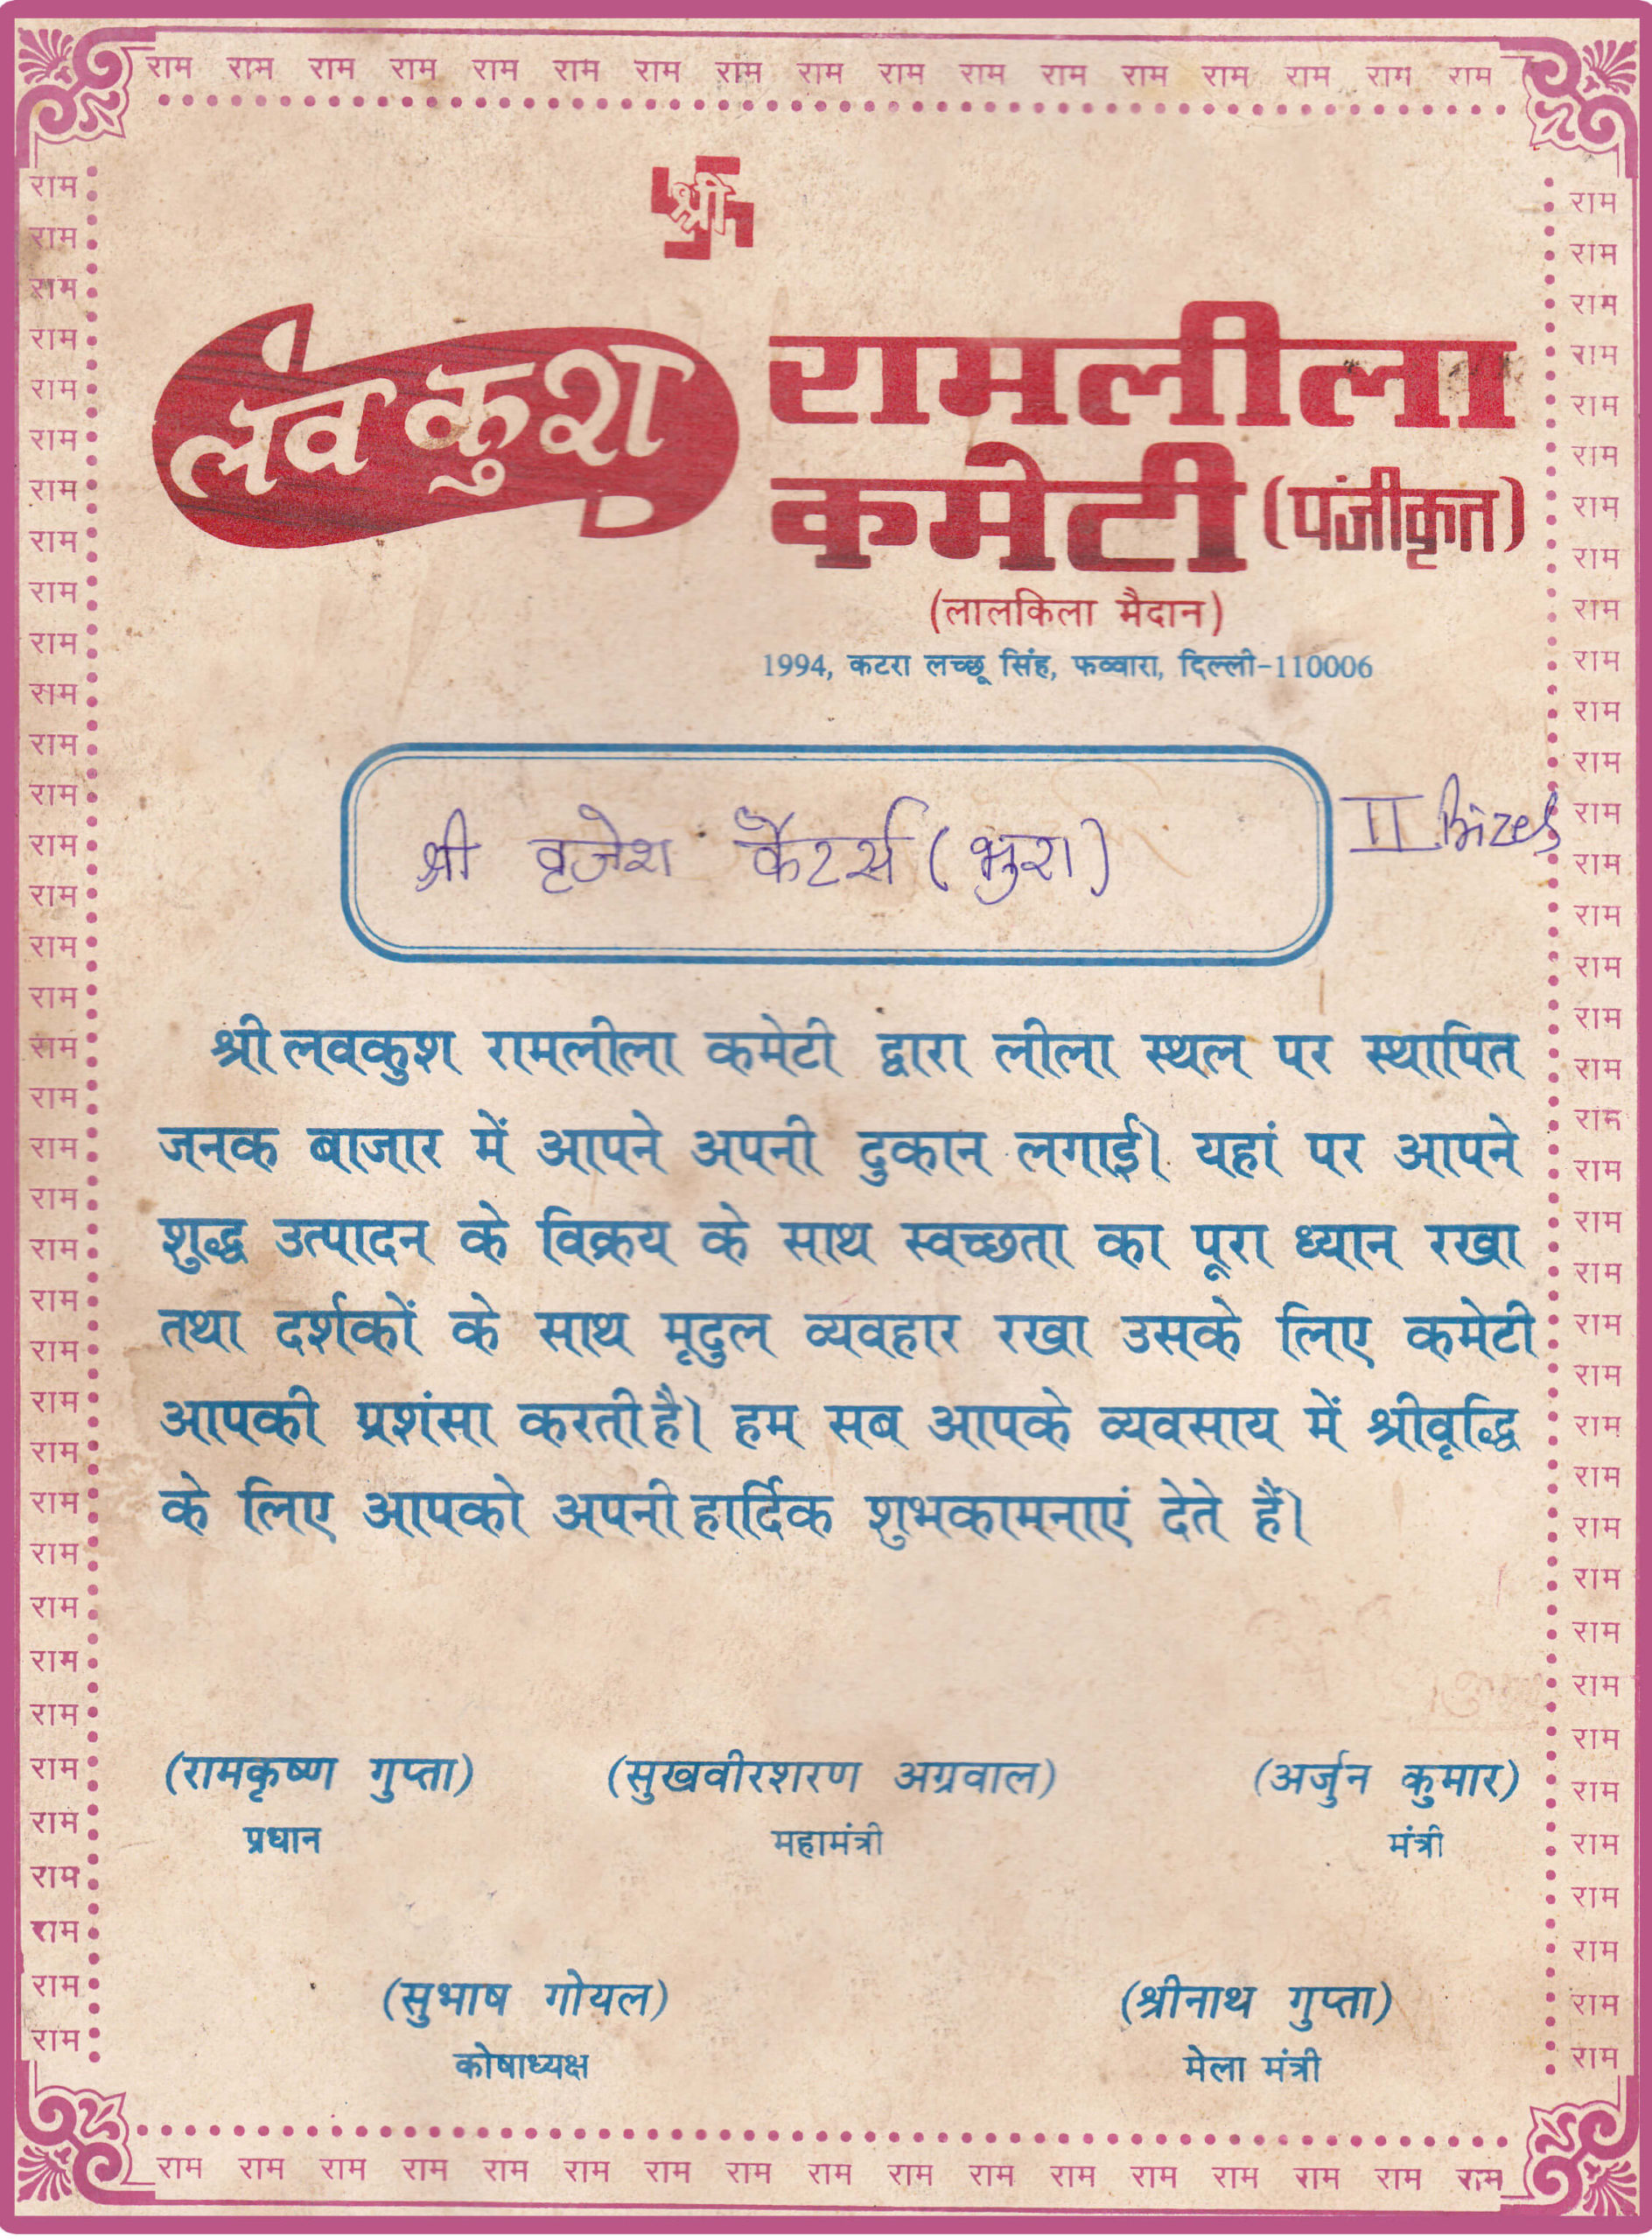 राम राम राम राम राम राम राम राम राम राम राम राम राम राम राम राम राम
श्री
लवकुश रामलीला
कमेटी (पंजीकृत)
(लालकिला मैदान)
1994, कटरा लच्छू सिंह, फव्वारा, दिल्ली-110006
श्री वृजेश कैटर्स (भुरा)
II Prize
श्री लवकुश रामलीला कमेटी द्वारा लीला स्थल पर स्थापित
जनक बाजार में आपने अपनी दुकान लगाई। यहां पर आपने
शुद्ध उत्पादन के विक्रय के साथ स्वच्छता का पूरा ध्यान रखा
तथा दर्शकों के साथ मृदुल व्यवहार रखा उसके लिए कमेटी
आपकी प्रशंसा करती है। हम सब आपके व्यवसाय में श्रीवृद्धि
के लिए आपको अपनी हार्दिक शुभकामनाएं देते हैं।
(रामकृष्ण गुप्ता) (सुखवीरशरण अग्रवाल) (अर्जुन कुमार)
प्रधान महामंत्री मंत्री
(सुभाष गोयल) (श्रीनाथ गुप्ता)
कोषाध्यक्ष मेला मंत्री
राम राम राम राम राम राम राम राम राम राम राम राम राम राम राम राम राम